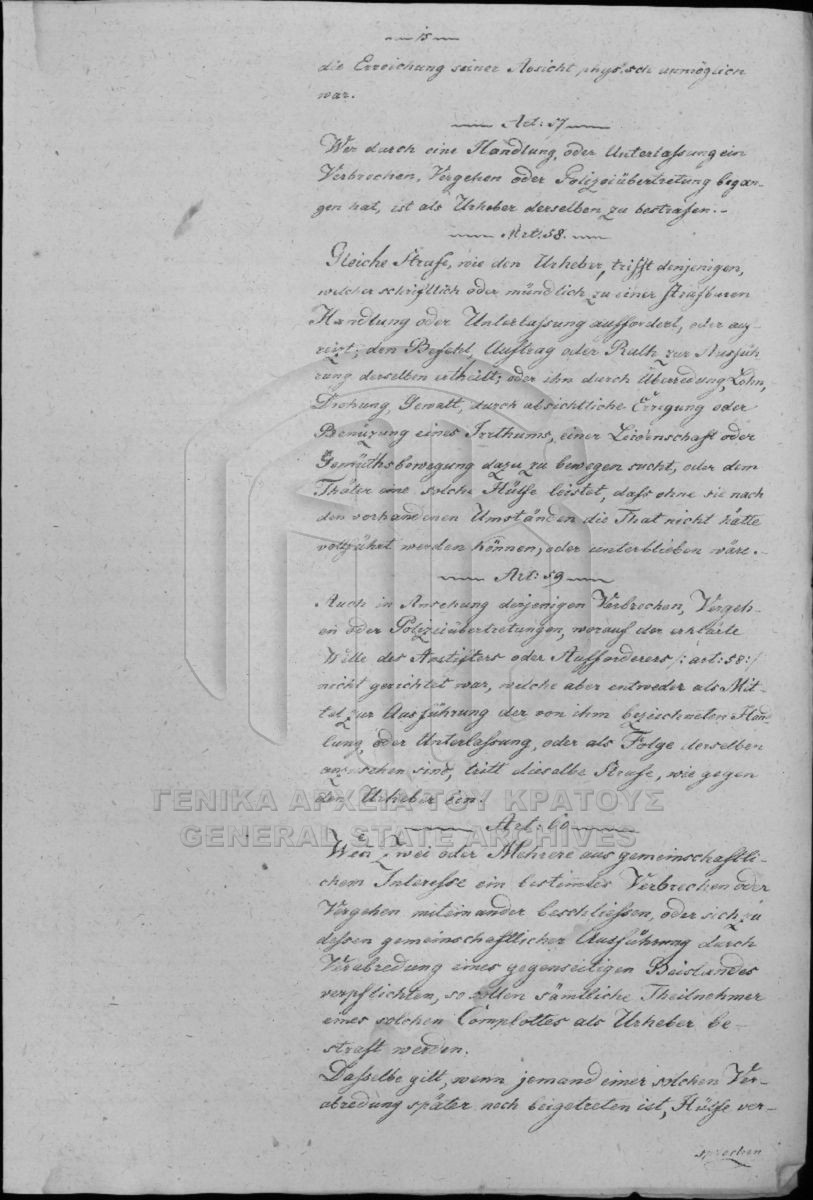 — 15 —
die Erreichung seiner Absicht physisch unmöglich
war.
Art: 57
Wer durch eine Handlung, oder Unterlassung ein
Verbrechen, Vergehen oder Polizeiübertretung began-
gen hat, ist als Urheber derselben zu bestrafen.-
Art: 58.
Gleiche Strafe, wie den Urheber, trifft denjenigen,
welcher schriftlich oder mündlich zu einer strafbaren
Handlung oder Unterlassung auffordert, oder an-
reizt; den Befehl, Auftrag oder Rath zur Ausfüh
rung derselben ertheilt; oder ihn durch Überredung, Lohn,
Drohung, Gewalt, durch absichtliche Erregung oder
Benüzung eines Irrthums, einer Leidenschaft oder
Gemüthsbewegung dazu zu bewegen sucht, oder dem
Thäter eine solche Hülfe leistet, dass ohne sie nach
den vorhandenen Umständen die That nicht hätte
vollführt werden können, oder unterblieben wäre.-
Art: 59
Auch in Ansehung derjenigen Verbrechen, Vergeh-
en oder Polizeiübertretungen, worauf der erklärte
Wille des Anstifters oder Aufforderers /: art: 58:/
nicht gerichtet war, welche aber entweder als Mit-
tel zur Ausführung der von ihm bezeichneten Hand-
lung, oder Unterlassung, oder als Folge derselben
anzusehen sind, tritt dieselbe Strafe, wie gegen
den Urheber ein.
ΓΕΝΙΚΑ ΑΡΧΕΙΑ ΤΟΥ ΚΡΑΤΟΥΣ
GENERAL STATE ARCHIVES
Art: 60
Weñ zwei oder Mehrere aus gemeinschaftli-
chem Interesse ein bestim̃tes Verbrechen oder
Vergehen miteinander beschliessen, oder sich zu
dessen gemeinschaftlicher Ausführung durch
Verabredung eines gegenseitigen Beistandes
verpflichten, so sollen sämtliche Theilnehmer
eines solchen Complottes als Urheber be-
straft werden.
Dasselbe gilt, wenn jemand einer solchen Ver-
abredung später noch beigetreten ist, Hülfe ver-
sprochen